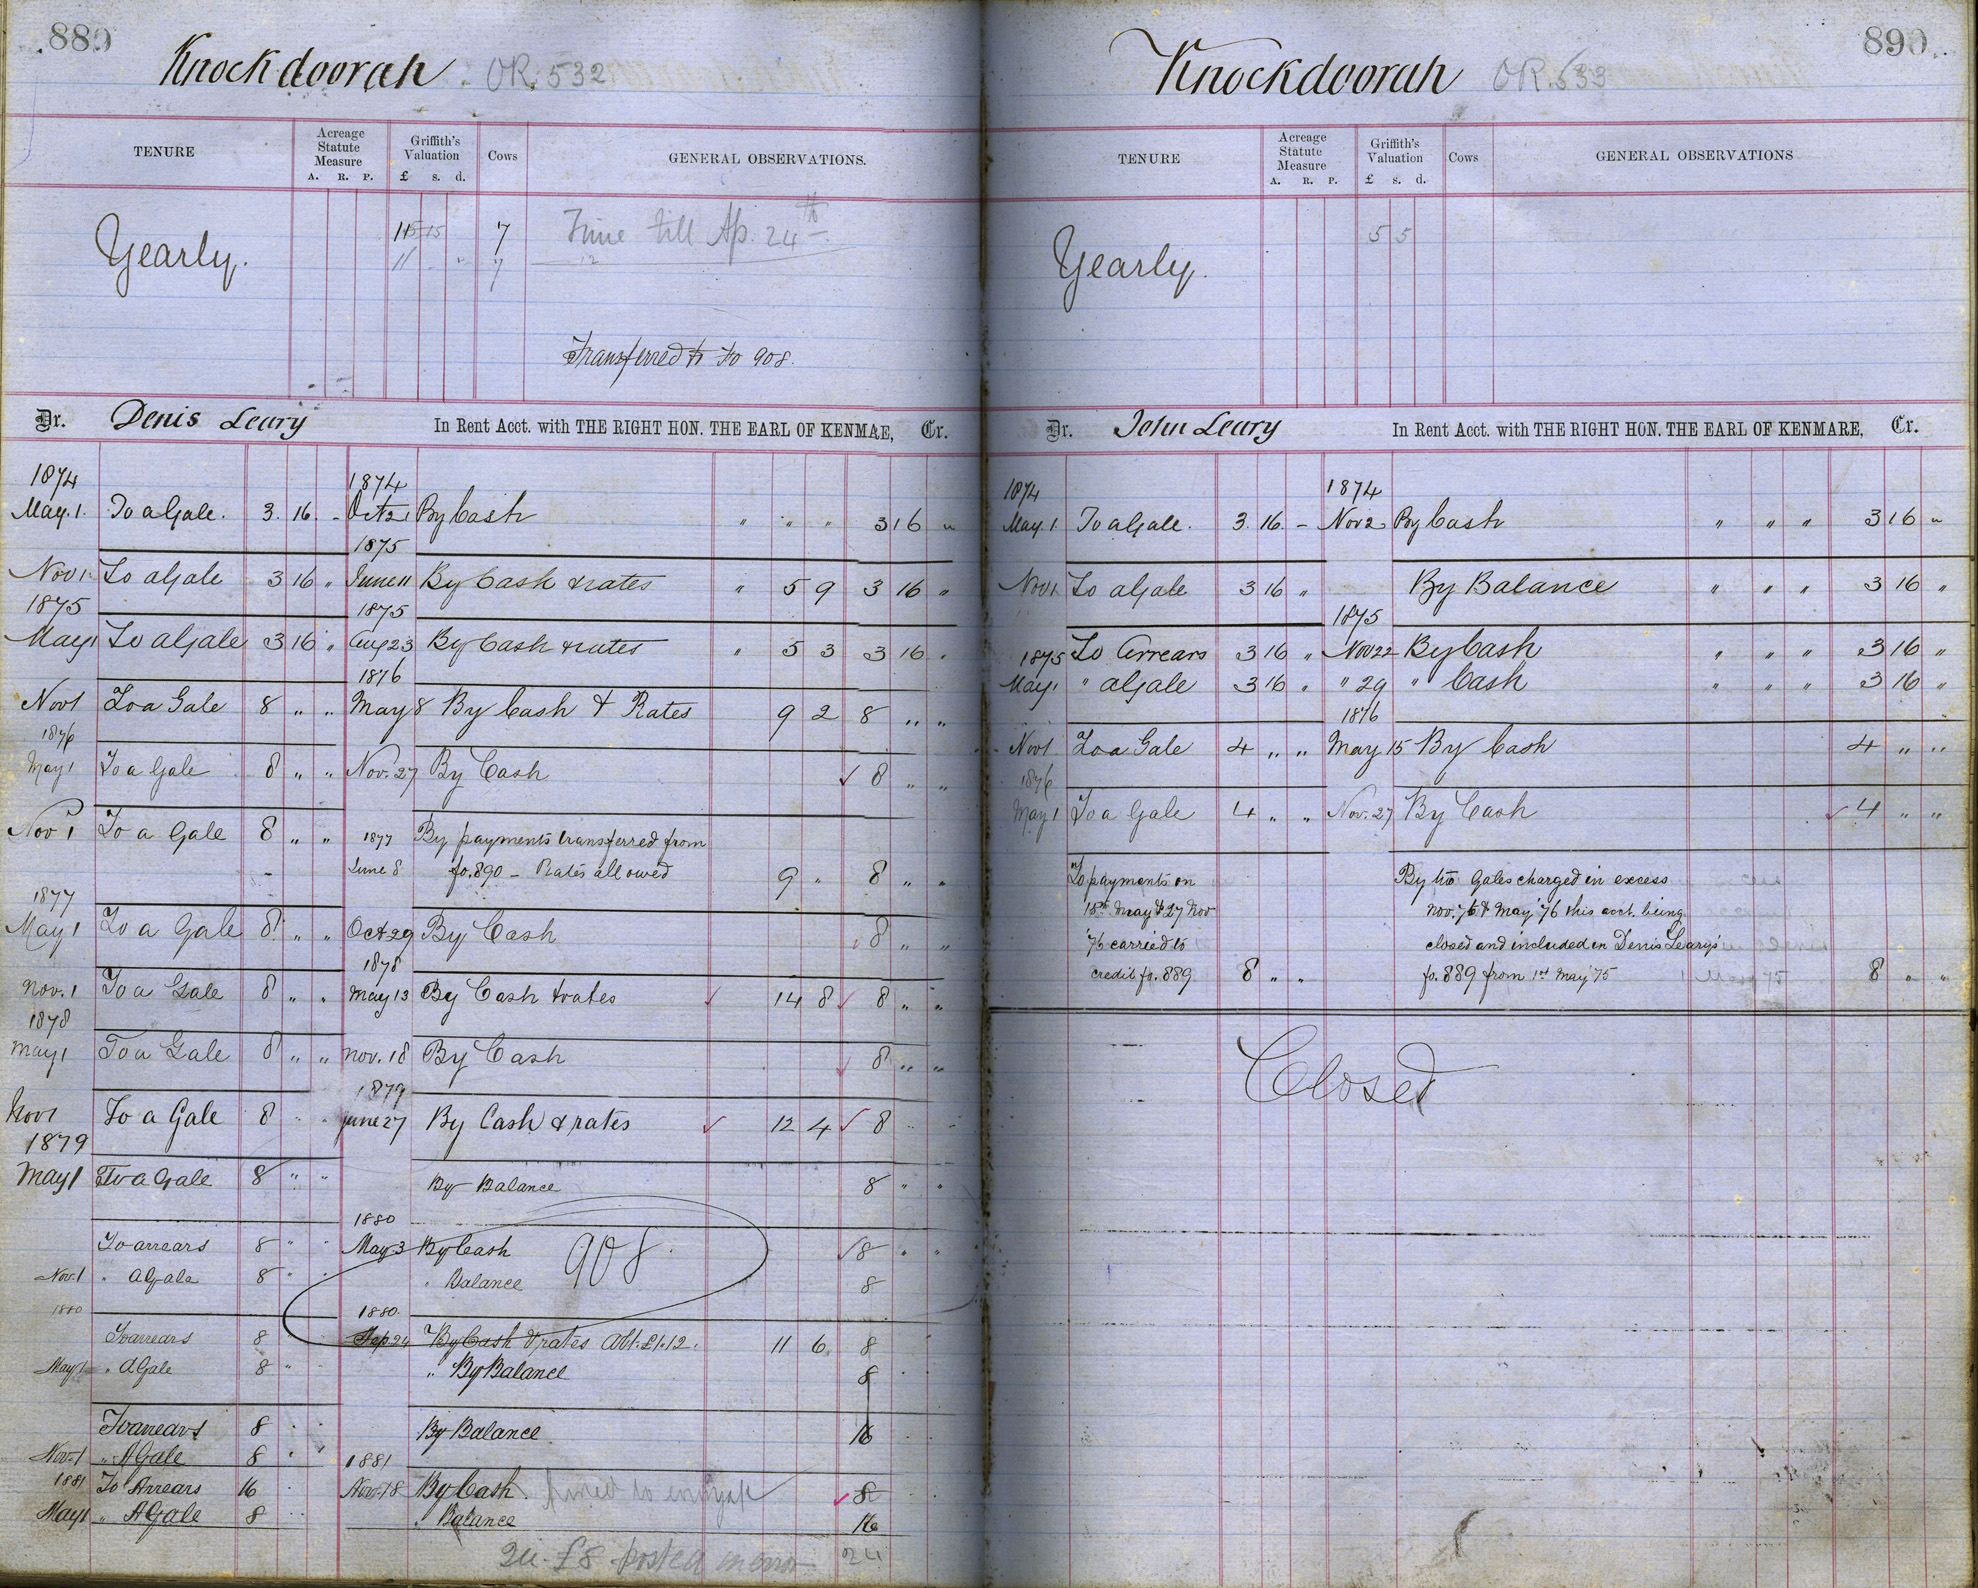 889
Knockdoorah OR. 532
TENURE
Acreage Statute Measure
A. R. P.
Griffith's Valuation
£ s. d.
Cows
GENERAL OBSERVATIONS.
Yearly.
15 15 7 Time till Ap. 24th
11 " 7
Transferred to fo 908.
Dr. Denis Leary In Rent Acct. with THE RIGHT HON. THE EARL OF KENMARE, Cr.
1874 1874
May. 1. To a Gale. 3. 16. - Oct 21 By Cash " " " 3 16 "
1875
Nov 1 To a Gale 3 16 " June 11 By Cash & rates " 5 9 3 16 "
1875 1875
May 1 To a Gale 3 16 " Aug 23 By Cash & rates " 5 3 3 16 "
1876
Nov 1 To a Gale 8 " " May 8 By Cash & Rates 9 2 8 " "
1876
May 1 To a Gale 8 " " Nov. 27 By Cash ✓ 8 " "
Nov 1 To a Gale 8 " " 1877 By payments transferred from
June 8 fo. 890 - Rates allowed 9 " 8 " "
1877
May 1 To a Gale 8 " " Oct 29 By Cash 8 " "
1878
Nov. 1 To a Gale 8 " " May 13 By Cash & rates ✓ 14 8 ✓ 8 " "
1878
May 1 To a Gale 8 " " Nov. 18 By Cash ✓ 8 " "
1879
Nov 1 To a Gale 8 " " June 27 By Cash & rates ✓ 12 4 ✓ 8
1879
May 1 To a Gale 8 " " By Balance 8 " "
1880
To arrears 8 " " May 3 By Cash 908. ✓ 8 " "
Nov. 1 " A Gale 8 " " Balance 8
1880 1880.
To arrears 8 Sep 24 By Cash & rates Abt. £1.12. 11 6. 8
May 1 " A Gale 8 " " By Balance 8
To arrears 8 By Balance 16
Nov. 1 " A Gale 8 1881
1881 To Arrears 16 Nov. 18 By Cash. ✓ 8
May 1 " A Gale 8 " Balance 16
£8 posted 24
890
Knockdoorah OR. 533
TENURE
Acreage Statute Measure
A. R. P.
Griffith's Valuation
£ s. d.
Cows
GENERAL OBSERVATIONS
Yearly. 5 5
Dr. John Leary In Rent Acct. with THE RIGHT HON. THE EARL OF KENMARE, Cr.
1874 1874
May. 1 To a Gale. 3. 16. - Nov 2 By Cash " " " 3 16 "
Nov 1 To a Gale 3 16 " By Balance " " " 3 16 "
1875
1875 To Arrears 3 16 " Nov 22 By Cash " " " 3 16 "
May 1 " a Gale 3 16 " " 29 " Cash " " " 3 16 "
1876
Nov 1 To a Gale 4 " " May 15 By Cash 4 " "
1876
May 1 To a Gale 4 " " Nov. 27 By Cash ✓ 4 " "
To payments on By two Gales charged in excess
15th May & 27 Nov Nov. 75 & May '76 this acct. being
'76 carried to closed and included in Denis Learys'
credit fo. 889 8 " " fo. 889 from 1st May '75 8 " "
Closed